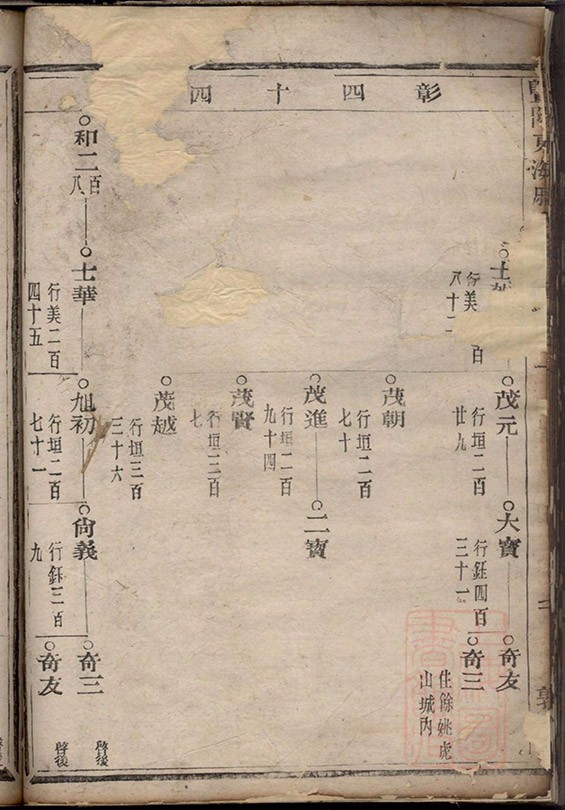 彰四十四
茂元
行垣二百
廿九
大寶
行鈺四百
三十一
奇友
奇三
住餘姚虎
山城內
茂朝
行垣二百
七十
茂進
行垣二百
九十四
二寶
茂賢
行垣三百
七
茂越
行垣三百
三十六
和二百
八
士華
行美二百
四十五
旭初
行垣二百
七十一
尙義
行鈺三百
九
奇三
啓後
奇友
啓後